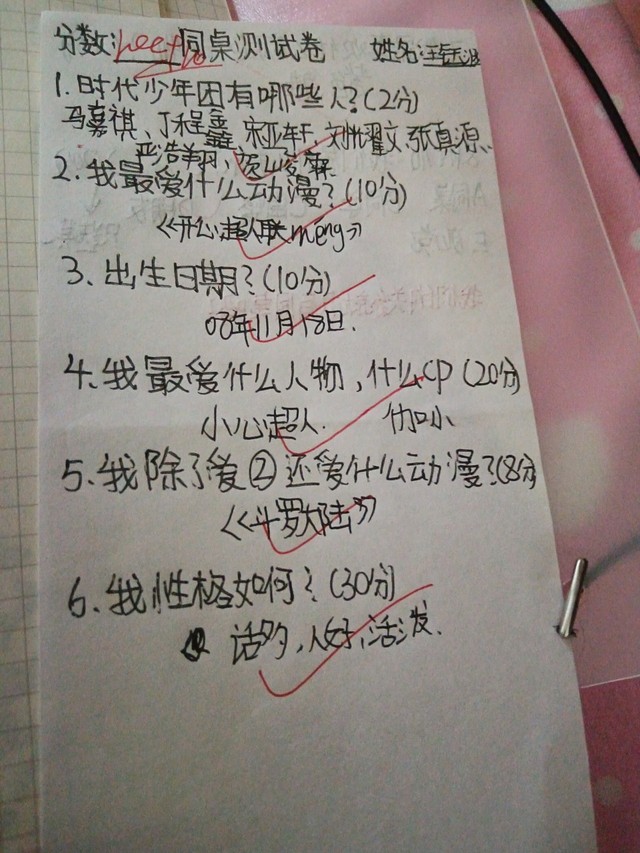 分数: 同桌测试卷 姓名:汪钰波
1.时代少年团有哪些人?(2分)
马嘉祺、丁程鑫、宋亚轩、刘耀文、张真源、
严浩翔、贺峻霖
2.我最爱什么动漫?(10分)
《开心超人联meng》
3.出生日期?(10分)
08年11月18日.
4.我最爱什么人物,什么CP(20分)
小心超人. 伽小
5.我除了爱②还爱什么动漫?(8分)
《斗罗大陆》
6.我性格如何?(30分)
话多,人好,活泼.